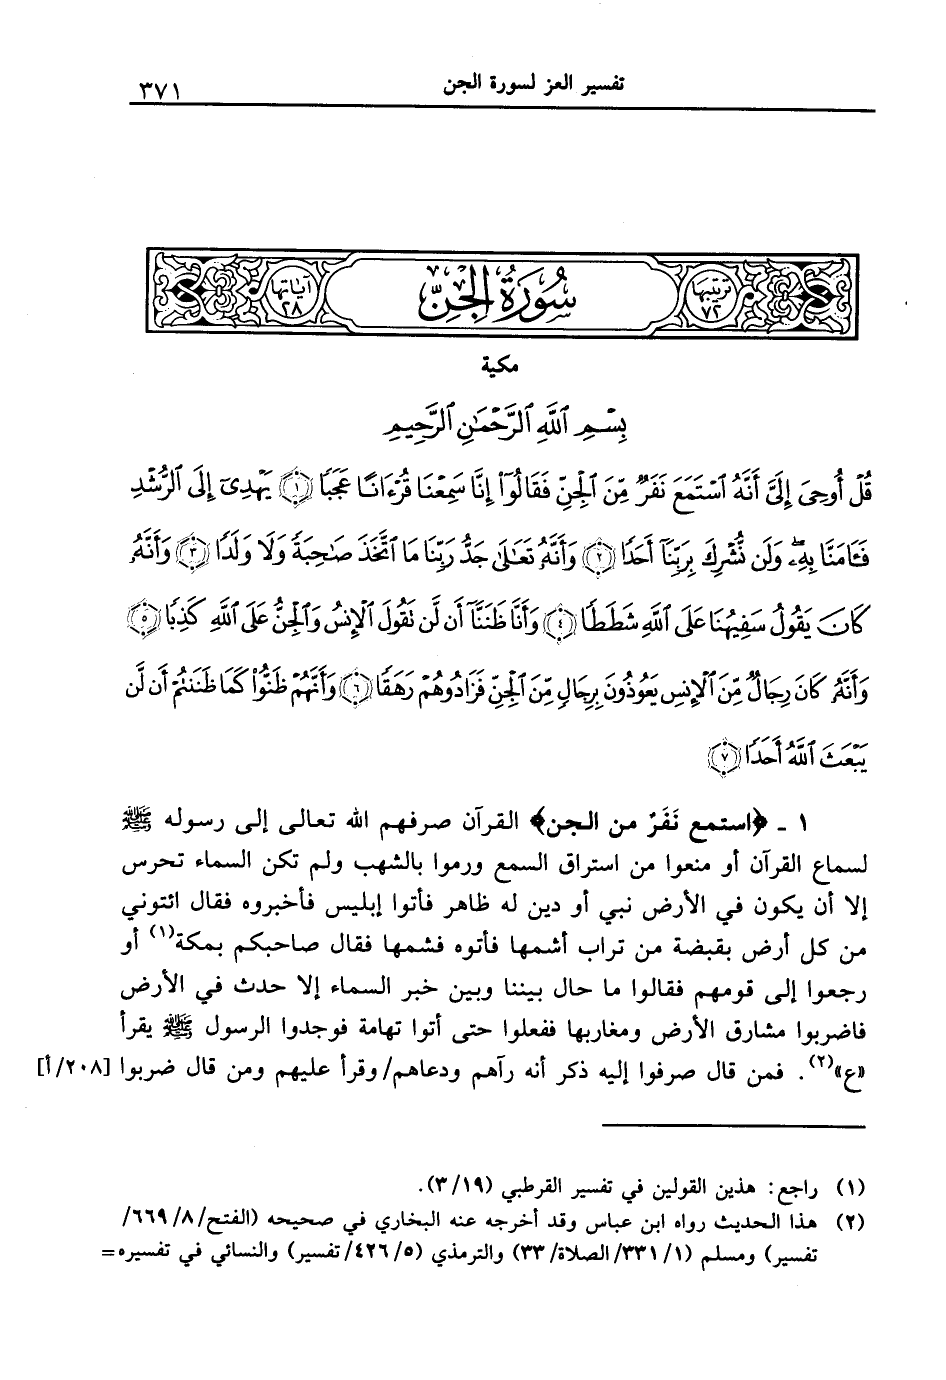 تفسير العز لسورة الجن
٣٧١
ترتيبها ٧٢ سُورَةُ الجِنّ آياتها ٢٨
مكية
بِسْمِ ٱللَّهِ ٱلرَّحْمَٰنِ ٱلرَّحِيمِ
قُلْ أُوحِىَ إِلَىَّ أَنَّهُ ٱسْتَمَعَ نَفَرٌ مِّنَ ٱلْجِنِّ فَقَالُوٓا۟ إِنَّا سَمِعْنَا قُرْءَانًا عَجَبًا ﴿١﴾ يَهْدِىٓ إِلَى ٱلرُّشْدِ
فَـَٔامَنَّا بِهِۦ ۖ وَلَن نُّشْرِكَ بِرَبِّنَآ أَحَدًا ﴿٢﴾ وَأَنَّهُۥ تَعَٰلَىٰ جَدُّ رَبِّنَا مَا ٱتَّخَذَ صَٰحِبَةً وَلَا وَلَدًا ﴿٣﴾ وَأَنَّهُۥ
كَانَ يَقُولُ سَفِيهُنَا عَلَى ٱللَّهِ شَطَطًا ﴿٤﴾ وَأَنَّا ظَنَنَّآ أَن لَّن تَقُولَ ٱلْإِنسُ وَٱلْجِنُّ عَلَى ٱللَّهِ كَذِبًا ﴿٥﴾
وَأَنَّهُۥ كَانَ رِجَالٌ مِّنَ ٱلْإِنسِ يَعُوذُونَ بِرِجَالٍ مِّنَ ٱلْجِنِّ فَزَادُوهُمْ رَهَقًا ﴿٦﴾ وَأَنَّهُمْ ظَنُّوا۟ كَمَا ظَنَنتُمْ أَن لَّن
يَبْعَثَ ٱللَّهُ أَحَدًا ﴿٧﴾
١ ـ ﴿استمع نَفَرٌ من الجن﴾ القرآن صرفهم الله تعالى إلى رسوله ﷺ
لسماع القرآن أو منعوا من استراق السمع ورموا بالشهب ولم تكن السماء تحرس
إلا أن يكون في الأرض نبي أو دين له ظاهر فأتوا إبليس فأخبروه فقال ائتوني
من كل أرض بقبضة من تراب أشمها فأتوه فشمها فقال صاحبكم بمكة(١) أو
رجعوا إلى قومهم فقالوا ما حال بيننا وبين خبر السماء إلا حدث في الأرض
فاضربوا مشارق الأرض ومغاربها ففعلوا حتى أتوا تهامة فوجدوا الرسول ﷺ يقرأ
«ع»(٢). فمن قال صرفوا إليه ذكر أنه رآهم ودعاهم/ وقرأ عليهم ومن قال ضربوا [٢٠٨/أ]
(١) راجع: هذين القولين في تفسير القرطبي (٣/١٩).
(٢) هذا الحديث رواه ابن عباس وقد أخرجه عنه البخاري في صحيحه (الفتح/٨/٦٦٩/
تفسير) ومسلم (١/٣٣١/الصلاة/٣٣) والترمذي (٥/٤٢٦/تفسير) والنسائي في تفسيره=